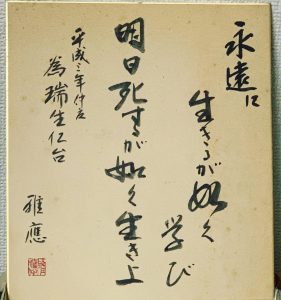 永遠に
生きるが如く
学び
明日死すが如く生き上
平成三年仲夏
為瑞生仁台
雅應